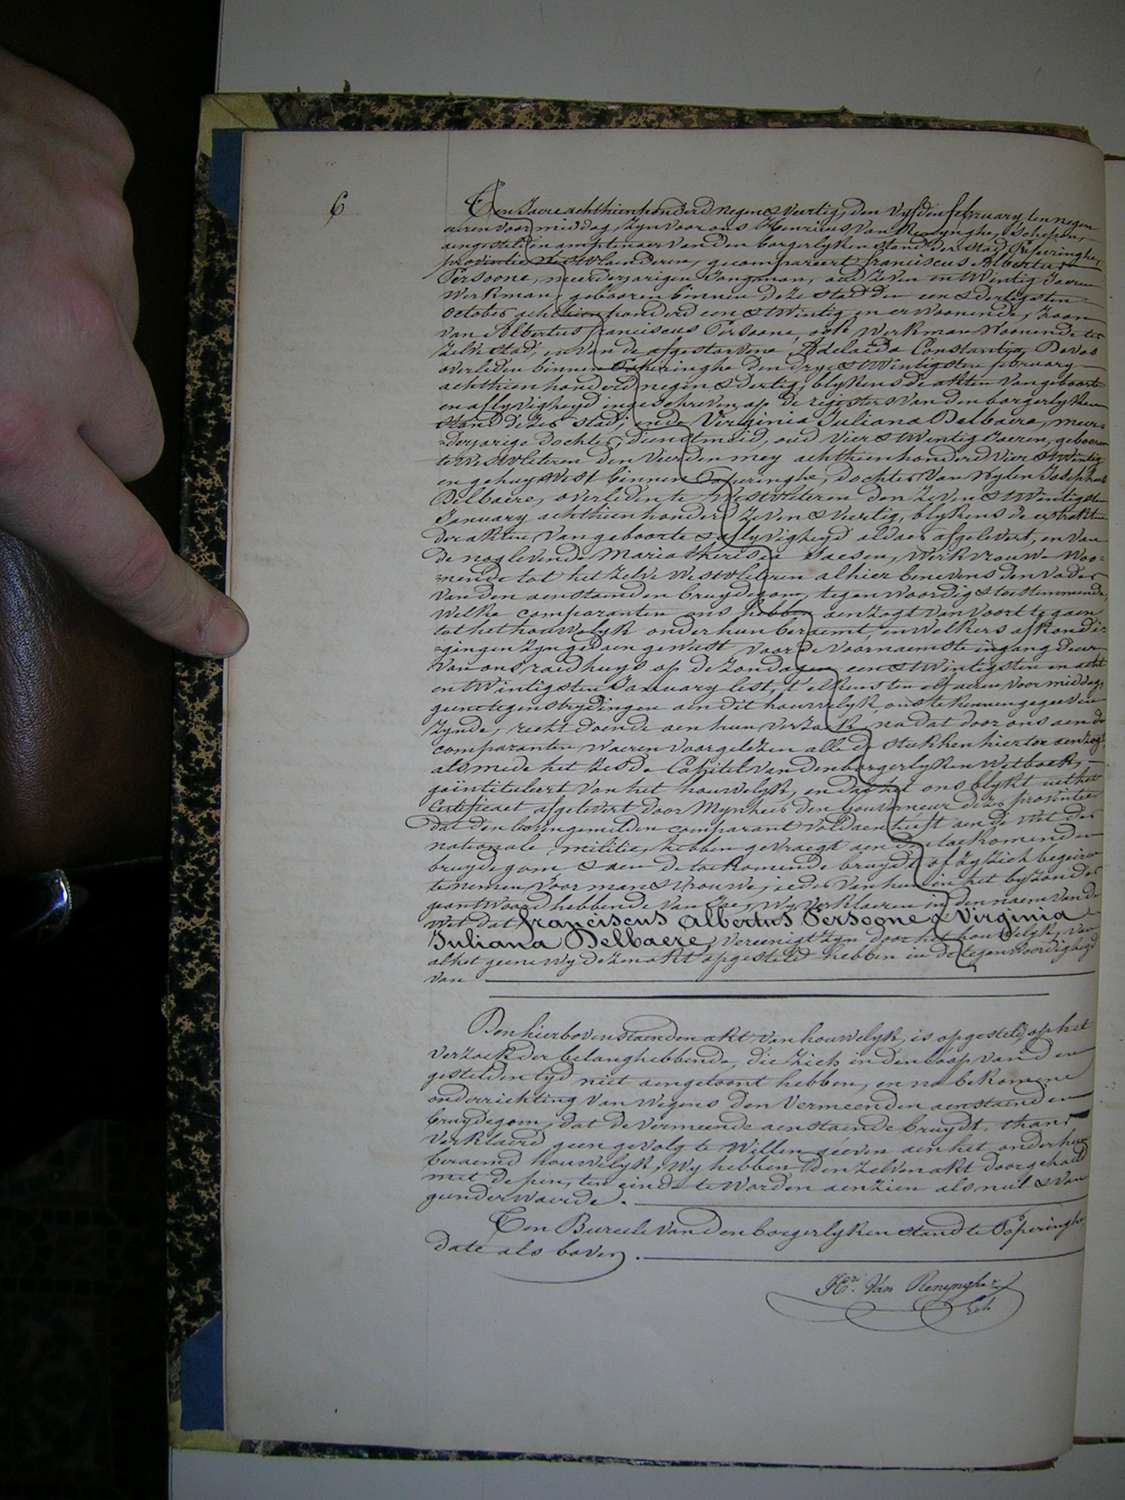 6
Ten Jaere achthienhonderd negen & Veertig, den Vyfden february, ten negen
ueren voor middag, Zyn voor ons Henricus Van Renynghe, Schepen,
aengestelden amptenaer van den borgerlyken stand der stad Poperinghe,
provintie Westvlaenderen, gecompareert franciscus Albertus
Persoone, meerderjarigen Jongman, oud Zeven en Wintig Jaeren
Werkman, gebooren binnen deze stad den een & dertigsten
october achthien honderd een & Wintig en er Woonende, Zoon
van Albertus franciscus Persoone, ook Werkman Woonende ter
Zelve stad, en van de afgestorvene Adelaida Constantia Devos
overleden binnen Poperinghe den drye & Wintigsten february
achthien honderd negen & dertig, blykens de akten van geboorte
en aflyvigheyd ingeschreven op de registers van den borgerlyken
stand dezer stad; ende Virginia Juliana Delbaere, meer-
derjarige dochter, dienstmeid, oud Vier & Wintig Jaeren, gebooren
te Westvleteren den Vierden mey achthienhonderd Vier & Wintig
en gehuysvest binnen Poperinghe, dochter van Wylen Josephus
Delbaere, overleden te Westvleteren den Zeven & Wintigsten
January achthienhonderd Zeven & Veertig, blykens de extrakten
der akten van geboorte & aflyvigheyd aldaer afgelevert, en van
de nog levende Maria theresia Jaesen, Werkvrouwe Woo-
nende tot het Zelve Westvleteren alhier benevens den vader
van den aenstaenden bruydegom, tegenwoordig & toestemmende,
Welke comparanten ons hebben aenzogt van voort te gaen
tot het houwelyk onder hun beraemt, en Welkers afkondi-
gingen Zyn gedaen geweest voor de voornaemste ingang deur
van ons raedhuys op de Zondagen een & Wintigsten en acht
en Wintigsten January lest, t'elkens ten elf ueren voor middag,
geene tegenstrydingen aen dit houwelyk ons te kennen gegeeven
Zynde, recht doende aen hun verzoek, na dat door ons aen de
comparanten Waeren voorgelezen alle de stukken hiertoe aenzogt
alsmede het Zesde Capitel van den borgerlyken Wetboek,
geintituleert van het houwelyk, en dat het ons blykt uit het
Certificaet afgelevert door Mynheer den Gouverneur dezer provintie
dat den bovengemelden comparant voldaen heeft aen de Wet der
nationale militie, hebben gevraegt aen de toekomenden
bruydegom & aen de toekomende bruydt of Zy Zich begeeren
te nemen voor man & vrouwe, ieder van hun in het byzonder
geantwoord hebbende van Jae, Wy verklaeren in den naem van de
Wet dat franciscus Albertus Persoone & Virginia
Juliana Delbaere, vereenigt Zyn door het houwelyk, van
al het geene wy dezen akt opgesteld hebben in de tegenwoordigheyd
van
Den hierboven staenden akt van houwelyk, is opgesteld op het
verzoek der belanghebbende, die Zich in den loop van den
gestelden tyd niet aengetoont hebben, en na bekomene
onderrichting van Wegens den Vermeenden aenstaenden
bruydegom, dat de vermeende aenstaende bruydt, thans
verklaerd geen gevolg te Willen geeven aen het onder hun
beraemd houwelyk, Wy hebben den Zelven akt doorgehaeld
met de pen, ten einde te Worden aenzien als nul & van
geender Waerde.
Ten Bureele van den borgerlyken stand te Poperinghe
date als boven.
Hr. Van Renynghe
Sch.